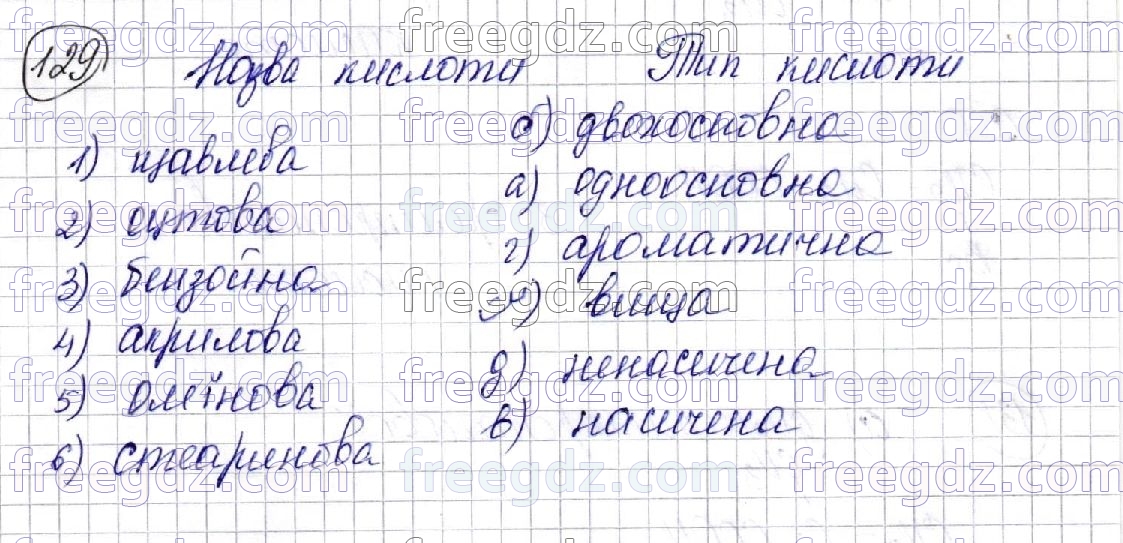 129 Назва кислоти Тип кислоти
б) двохосновна
1) щавлева
а) одноосновна
2) оцтова
г) ароматична
3) бензойна
вища
4) акрилова
д) ненасичена
5) олеїнова
в) насичена
6) стеаринова
freegdz.com